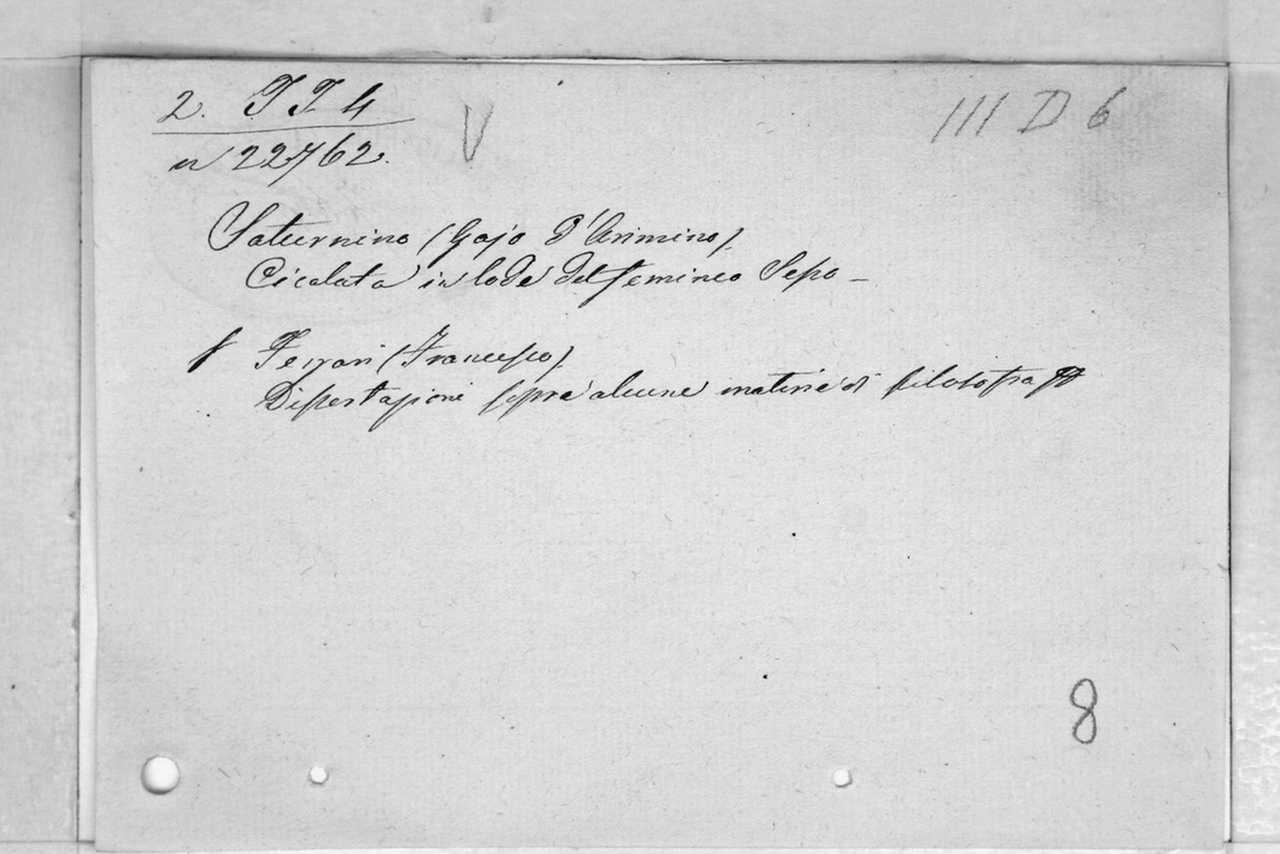 2. T T 4
V
III D 6
n 22762.
Saturnino (Gajo d'Arimino).
Cicalata in lode del femineo Sesso —
Ferrari (Francesco)
Dissertazioni sopra alcune materie di filosofia
8